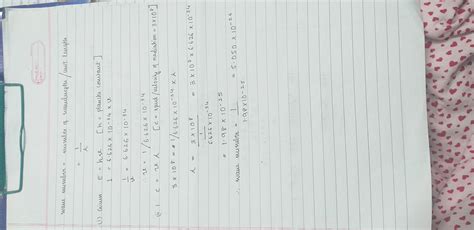 wave number = number of wavelengths / unit length
= 1/λ
(i) Given E = hν [h = planks constant]
1 = 6.626 × 10⁻³⁴ × ν
1/ν = 6.626 × 10⁻³⁴
ν = 1 / 6.626 × 10⁻³⁴
c = ν λ [c = speed/velocity of radiation = 3 × 10⁸]
3 × 10⁸ = 1/6.626 × 10⁻³⁴ × λ
λ = 3 × 10⁸ / 1/6.626 × 10⁻³⁴ = 3 × 10⁸ × 6.626 × 10⁻³⁴
= 1.98 × 10⁻²⁵
∴ wave number = 1/1.98 × 10⁻²⁵ = 5.050 × 10⁻²⁴